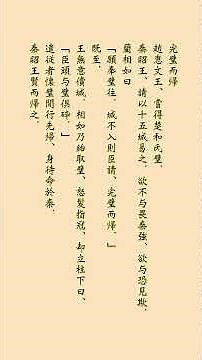 完璧而帰
趙恵文王、嘗得楚和氏璧。
秦昭王、請以十五城易之。欲不与畏秦強、欲与恐見欺。
藺相如曰
「願奉璧往。城不入則臣請、完璧而帰。」
既至。
王無意償城。相如乃紿取璧、怒髪指冠、却立柱下曰、
「臣頭与璧俱砕。」
遣従者懐璧間行先帰、身待命於秦。
秦昭王賢而帰之。